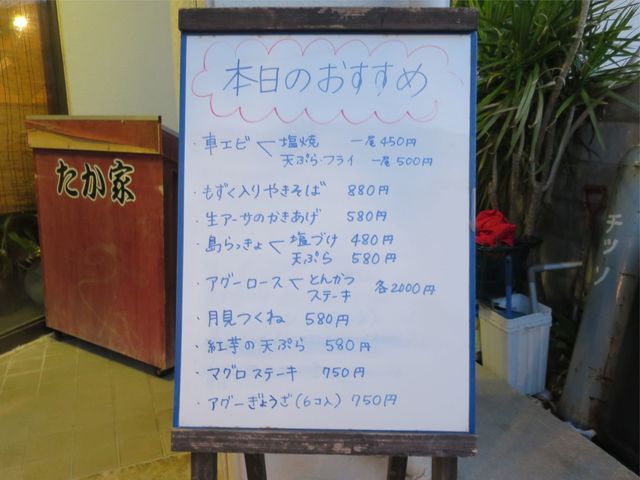 本日のおすすめ
・車エビ < 塩焼 一尾450円
天ぷら・フライ 一尾500円
・もずく入りやきそば 880円
・生アーサのかきあげ 580円
・島らっきょ < 塩づけ 480円
天ぷら 580円
・アグーロース < とんかつ 各2000円
ステーキ
・月見つくね 580円
・紅芋の天ぷら 580円
・マグロステーキ 750円
・アグーぎょうざ(6コ入) 750円
たか家
チッソ